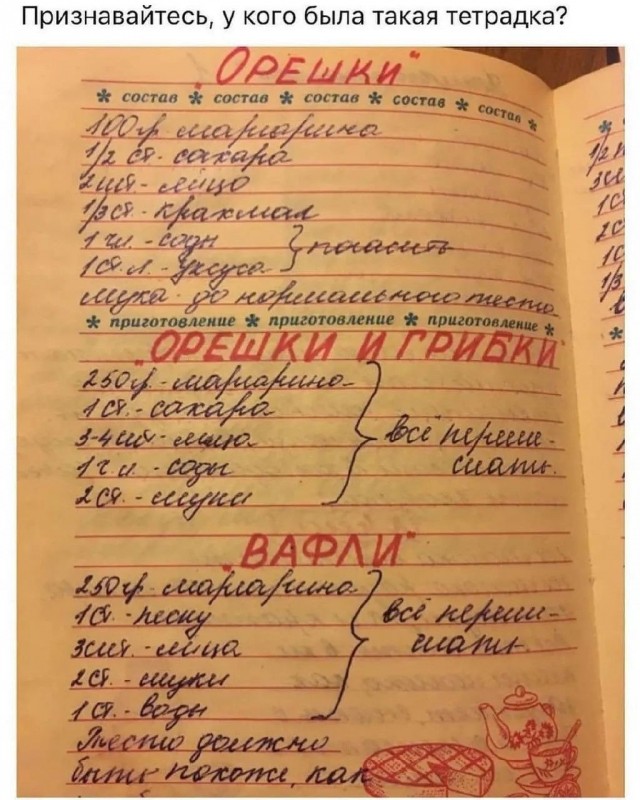 Признавайтесь, у кого была такая тетрадка?
„ОРЕШКИ"
* состав * состав * состав * состав * состав *
100гр. маргарина
1/2 ст. сахара
2шт.- яйцо
1/3ст.- крахмал
1 ч.л. - соды } погасить
1ст. л.- уксуса
мука - до нормального теста
* приготовление * приготовление * приготовление *
„ОРЕШКИ И ГРИБКИ"
250гр.- маргарина
1 ст.- сахара
3-4 шт.- яйца
1 ч л. - соды
2 ст.- муки
} всё переме-
шать.
„ВАФЛИ"
250 гр. маргарина
1ст.- песку
3шт.- яйца
2 ст.- муки
1 ст.- воды
} всё переме-
шать.
Тесто должно
быть похоже, как
1/2
1
2
1
1/3